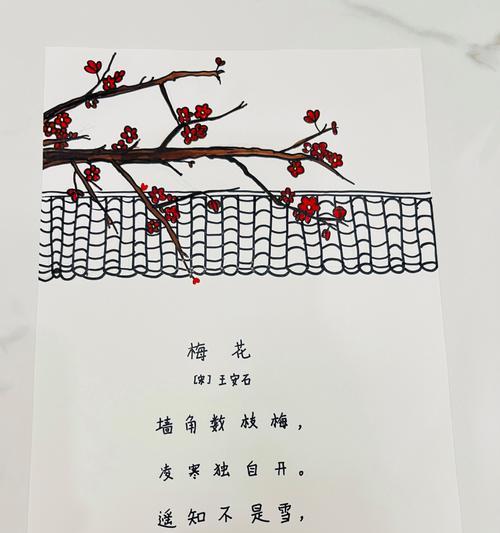 梅 花
［宋］王安石
墙角数枝梅，
凌寒独自开。
遥知不是雪，